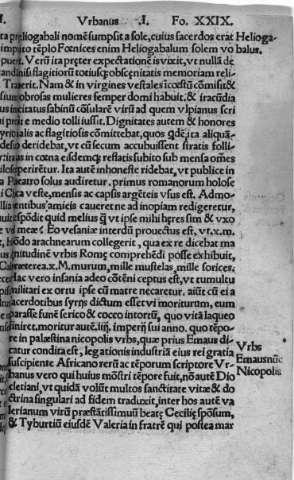 Vrbanus .I. Fo. XXIX.
ta preliogabali nomé sumpsit a sole, cuius sacerdos erat Helioga-
impuro téplo Fœnices enim Heliogabalum solem vo balus.
puer. Verũ ita preter expectatione ̃ vixit, vt nullã de
flagitiorũ totiusq; obscenitatis memoriam reli-
Traerit. Nam & in virgines vestales icœstũ cōmisit &
obrosas mulieres semper domi habuit, & iracũdia
us incitatus sabinũ cōsularẽ virũ ad quem vlpianus scri
e medio tolli iussit. Dignitates autem & honores
ac flagitiosis cōmittebat, quos
deridebat, vt cũ secum accubuissent stratis folli
in cœna eisdemq; reflatis subito sub mensa omẽs
perirẽt. Ita autẽ inhoneste ridebat, vt publice in
solus audiretur, primus romanorum holose
ca veste, mensis ac capsis argẽteis vsus est. Admo-
entibus amicis caueret ne ad inopiam redigeretur,
spõdit quid melius ꝗ vt ipse mihi heres sim & vxo
meæ? Eo vesaniæ interdũ prouectus est, vt .x.m.
arachnearum collegerit, qua ex re dicebat ma
nitudinẽ vrbis Romę comprehẽdi posse exhibuit,
.X.M. murum, mille mustelas, mille sorices.
lac vero insania adeo cōtẽni ceptus est, vt tumultu
militari ex ortu ipse cũ matre necaretur, aiũt cũ ei a
sacerdotibus syrijs dictum esset vi moriturum, eum
parasse funẽ serico & cocco intortũ, quo vitã laqueo
finiret, moritur autẽ. iiij. imperij sui anno. quo tẽpo-
re in palæstina nicopolis vrbs, quæ prius Emaus di-
catur condita est, legationis industriã eius rei gratia
suscipiente Africano rerũ ac tẽporum scriptore Vr-
banus vero qui huius mõstri tẽpore fuit, nõ autẽ Dio
cletiani, vt quidã volũt multos sanctitate vitæ & do
ctrina singulari ad fidem traduxit, inter hos autẽ va
lerianum virũ præstãtissimũ beatę Ceciliẽ spõsum,
& Tyburtiũ eiusdẽ Valeria in fratrẽ qui postea mar
Vrbs
Emausnũc
Nicopolis